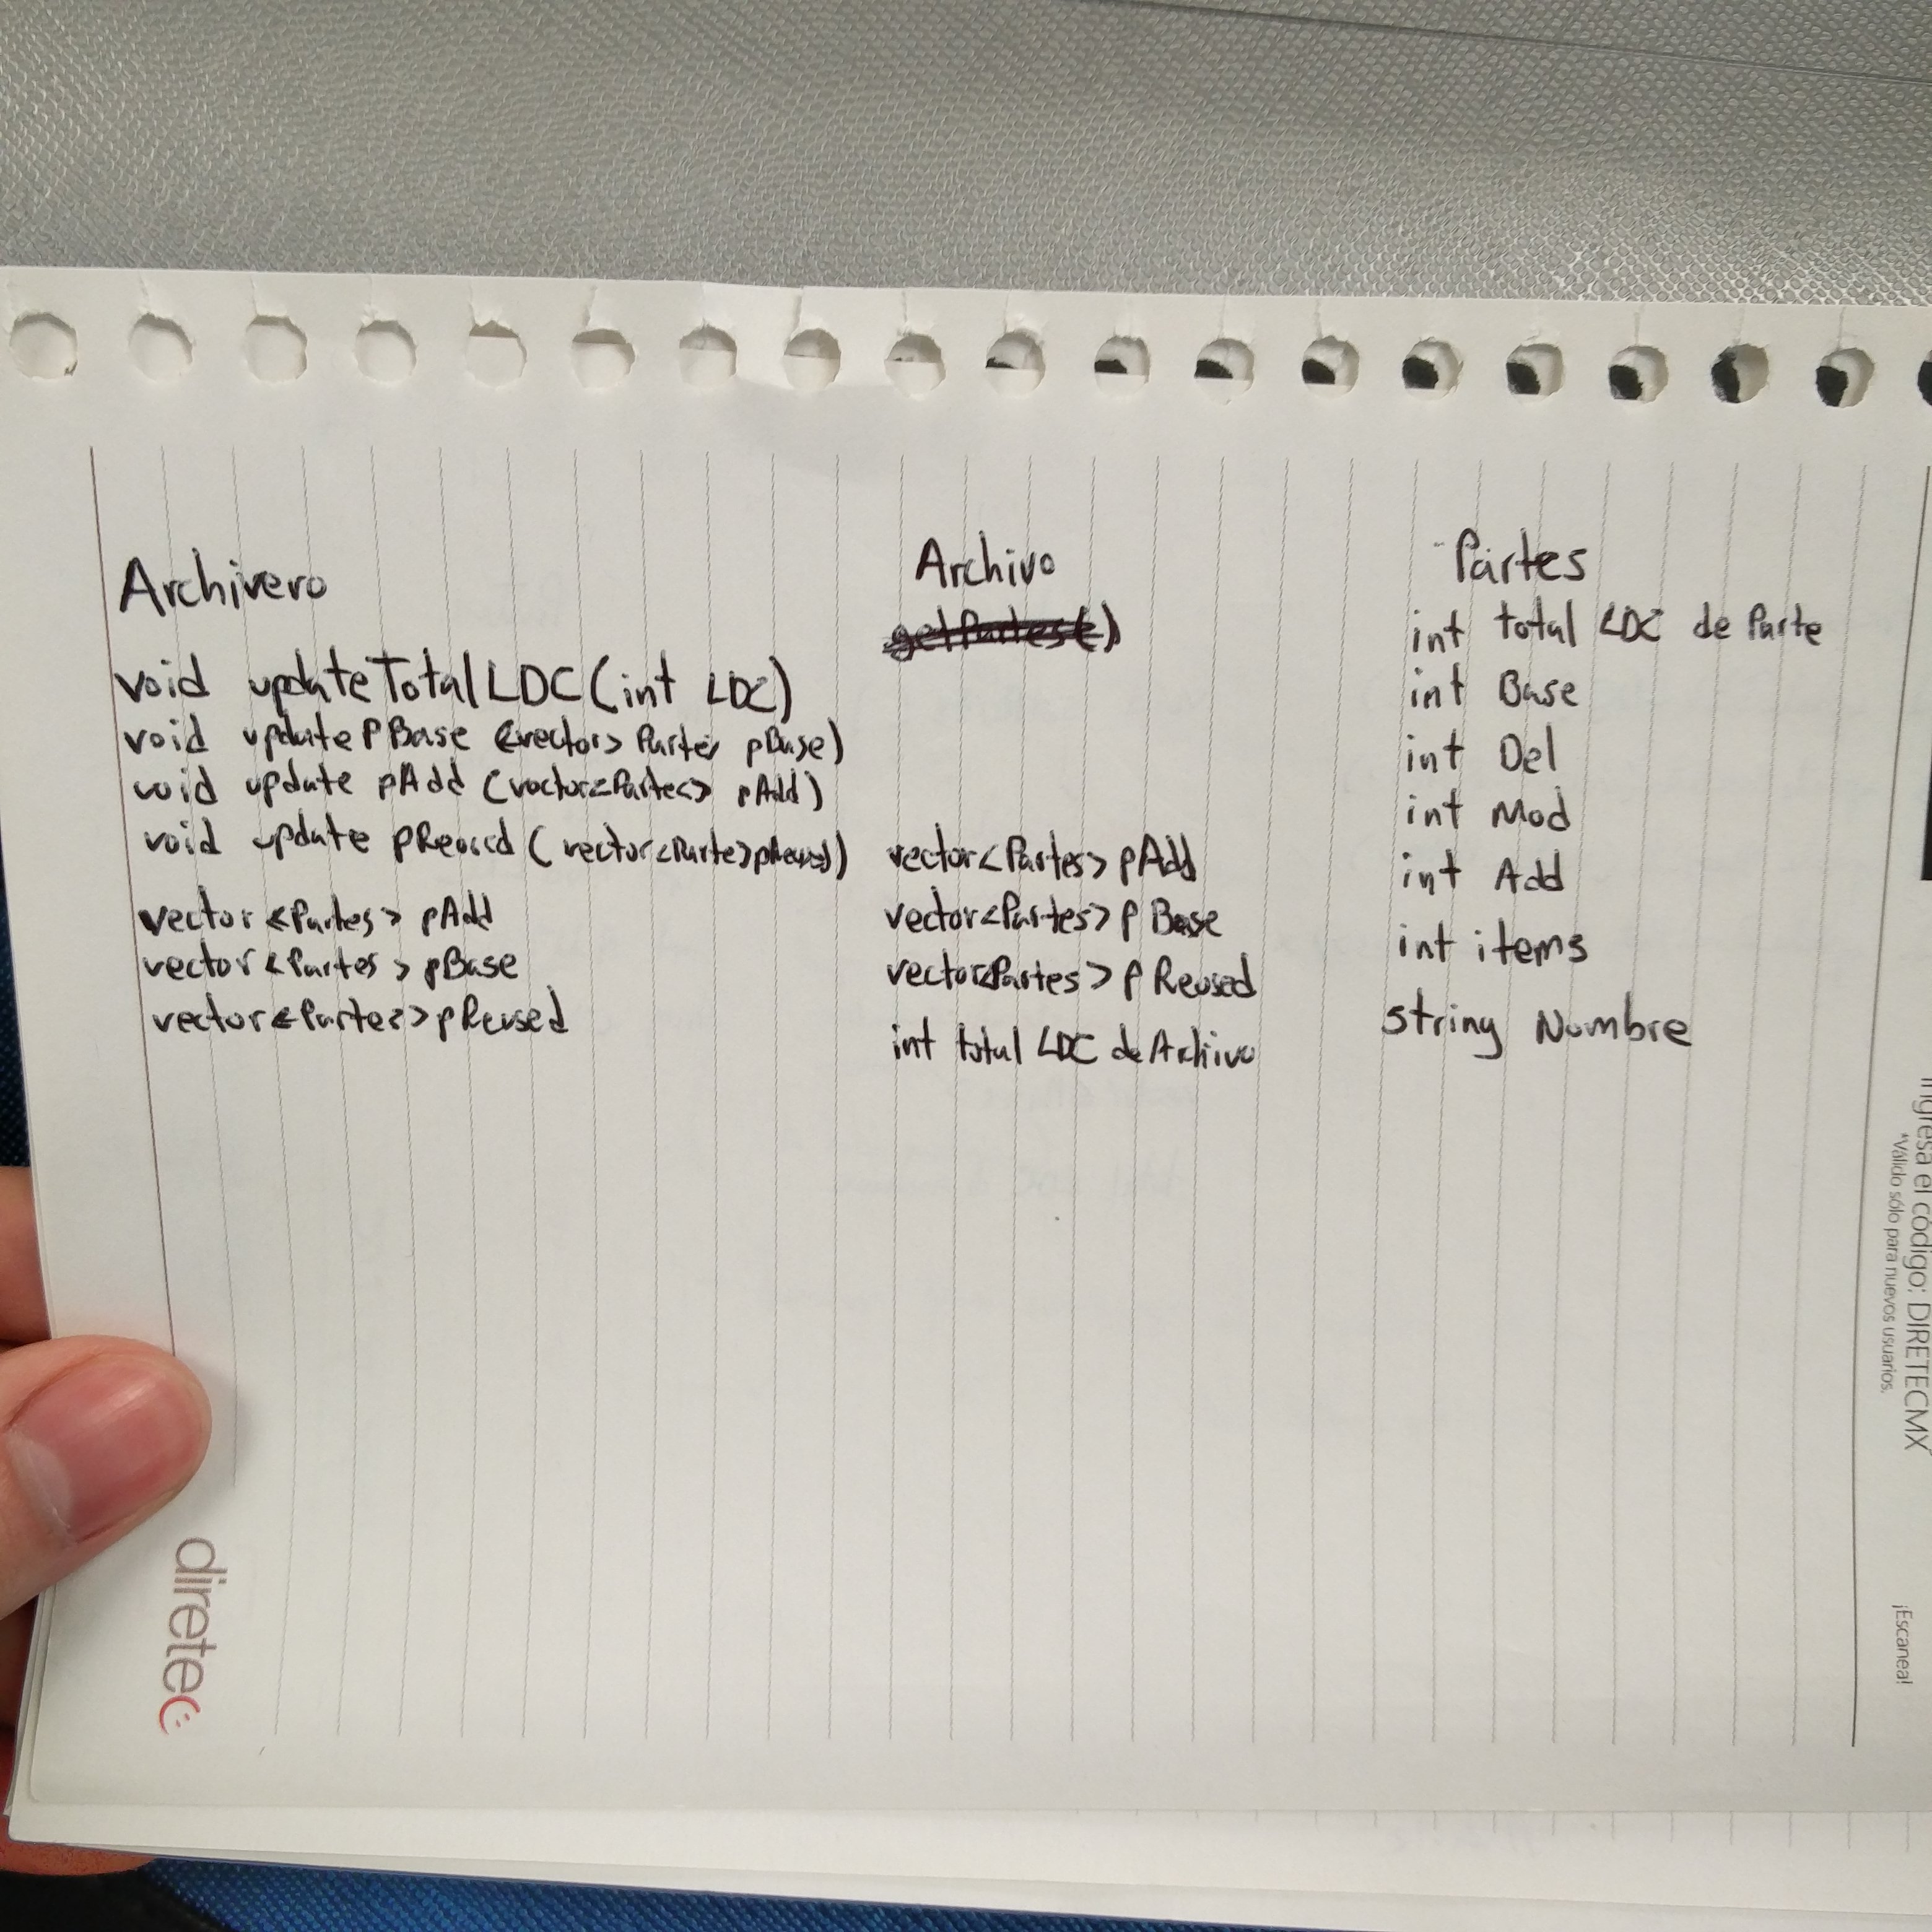 Archivero
void updateTotalLDC(int LDC)
void updatePBase (<vector> Partes pBase)
void update pAdd (vector<Partes> pAdd)
void update pReused (vector<Parte>pReused)
vector<Partes> pAdd
vector<Partes> pBase
vector<Partes>pReused
Archivo
getPartes()
vector<Partes> pAdd
vector<Partes> pBase
vector<Partes> pReused
int total LDC de Archivo
Partes
int total LDC de Parte
int Base
int Del
int Mod
int Add
int items
string Nombre
direte
ingresa el código: DIRETECMX
*Válido sólo para nuevos usuarios.
¡Escanea!